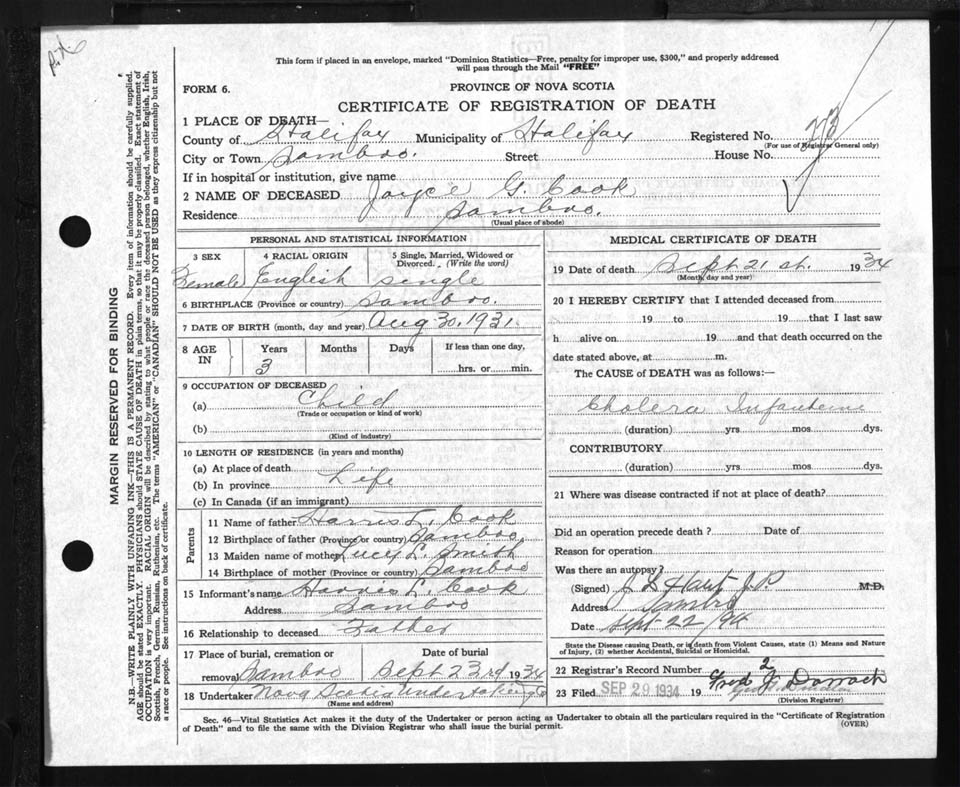 P.N.
This form if placed in an envelope, marked "Dominion Statistics—Free, penalty for improper use, $300," and properly addressed
will pass through the Mail "FREE"
FORM 6.
PROVINCE OF NOVA SCOTIA
CERTIFICATE OF REGISTRATION OF DEATH
1 PLACE OF DEATH—
County of Halifax Municipality of Halifax Registered No. 23
(For use of Registrar General only)
City or Town Sambro. Street House No.
If in hospital or institution, give name
2 NAME OF DECEASED Joyce G. Cook
Residence Sambro.
(Usual place of abode)
PERSONAL AND STATISTICAL INFORMATION
3 SEX 4 RACIAL ORIGIN 5 Single, Married, Widowed or
Divorced. (Write the word)
Female English Single
6 BIRTHPLACE (Province or country) Sambro.
7 DATE OF BIRTH (month, day and year) Aug 30, 1931
8 AGE IN Years Months Days If less than one day,
3 hrs. or min.
9 OCCUPATION OF DECEASED
(a) Child
(Trade or occupation or kind of work)
(b)
(Kind of industry)
10 LENGTH OF RESIDENCE (in years and months)
(a) At place of death
(b) In province Life
(c) In Canada (if an immigrant)
Parents
11 Name of father Harris L. Cook
12 Birthplace of father (Province or country) Sambro
13 Maiden name of mother Lucy L. Smith
14 Birthplace of mother (Province or country) Sambro
15 Informant's name Harris L. Cook
Address Sambro
16 Relationship to deceased Father
17 Place of burial, cremation or Date of burial
removal Sambro Sept 23rd 1934
18 Undertaker Nova Scotia Undertaking Co
(Name and address)
MEDICAL CERTIFICATE OF DEATH
19 Date of death Sept 21st. 1934
(Month, day and year)
20 I HEREBY CERTIFY that I attended deceased from
19 to 19 that I last saw
h alive on 19 and that death occurred on the
date stated above, at m.
The CAUSE of DEATH was as follows:—
Cholera
(duration) yrs. mos. dys.
CONTRIBUTORY
(duration) yrs. mos. dys.
21 Where was disease contracted if not at place of death?
Did an operation precede death? Date of
Reason for operation
Was there an autopsy?
(Signed) J S Hart J.P. M.D.
Address Sambro
Date Sept 22/34
State the Disease causing Death, or in death from Violent Causes, state (1) Means and Nature
of Injury, (2) whether Accidental, Suicidal or Homicidal.
22 Registrar's Record Number 2
23 Filed SEP 29 1934 19 Fred J Darrach
(Division Registrar)
Sec. 46—Vital Statistics Act makes it the duty of the Undertaker or person acting as Undertaker to obtain all the particulars required in the "Certificate of Registration
of Death" and to file the same with the Division Registrar who shall issue the burial permit.
(OVER)
MARGIN RESERVED FOR BINDING
N.B.—WRITE PLAINLY WITH UNFADING INK—THIS IS A PERMANENT RECORD. Every item of information should be carefully supplied.
AGE should be stated EXACTLY. PHYSICIANS should STATE CAUSE OF DEATH in plain terms, so that it may be properly classified. Exact statement of
OCCUPATION is very important. RACIAL ORIGIN will be described by stating to what people or race the deceased person belonged, whether English, Irish,
Scottish, French, German, Russian, Ruthenian, etc. The terms "AMERICAN" or "CANADIAN" SHOULD NOT BE USED as they express citizenship but not
a race or people. See instructions on back of certificate.